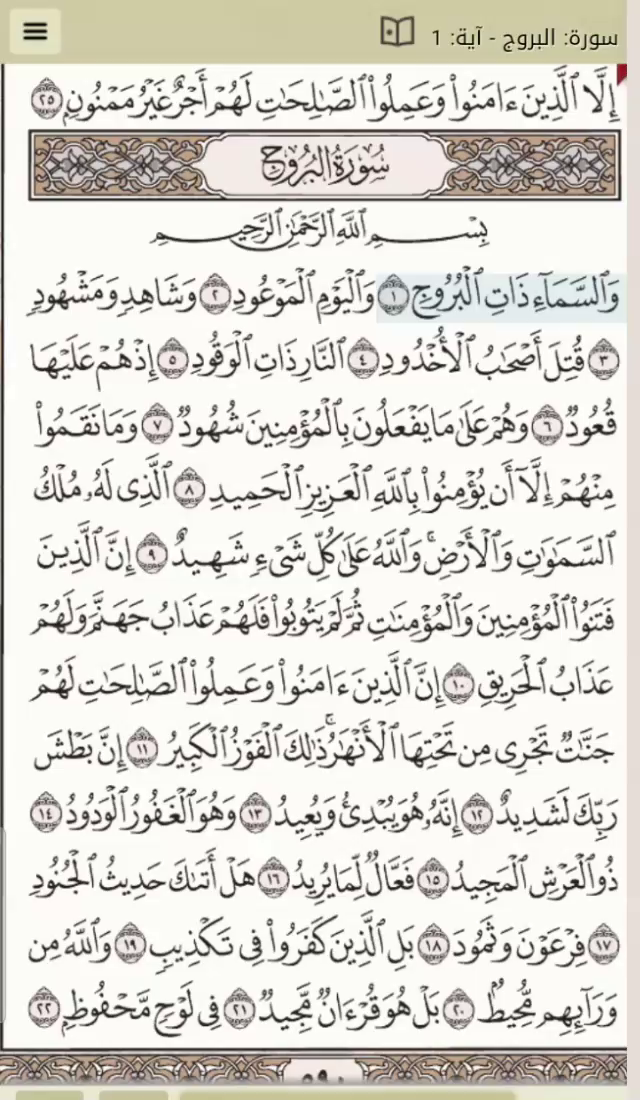 سورة: البروج - آية: 1
إِلَّا ٱلَّذِينَ ءَامَنُواْ وَعَمِلُواْ ٱلصَّٰلِحَٰتِ لَهُمۡ أَجۡرٌ غَيۡرُ مَمۡنُونِۭ ٢٥
سُورَةُ البُرُوجِ
بِسۡمِ ٱللَّهِ ٱلرَّحۡمَٰنِ ٱلرَّحِيمِ
وَٱلسَّمَآءِ ذَاتِ ٱلۡبُرُوجِ ١ وَٱلۡيَوۡمِ ٱلۡمَوۡعُودِ ٢ وَشَاهِدٖ وَمَشۡهُودٖ
٣ قُتِلَ أَصۡحَٰبُ ٱلۡأُخۡدُودِ ٤ ٱلنَّارِ ذَاتِ ٱلۡوَقُودِ ٥ إِذۡ هُمۡ عَلَيۡهَا
قُعُودٞ ٦ وَهُمۡ عَلَىٰ مَا يَفۡعَلُونَ بِٱلۡمُؤۡمِنِينَ شُهُودٞ ٧ وَمَا نَقَمُواْ
مِنۡهُمۡ إِلَّآ أَن يُؤۡمِنُواْ بِٱللَّهِ ٱلۡعَزِيزِ ٱلۡحَمِيدِ ٨ ٱلَّذِي لَهُۥ مُلۡكُ
ٱلسَّمَٰوَٰتِ وَٱلۡأَرۡضِۚ وَٱللَّهُ عَلَىٰ كُلِّ شَيۡءٖ شَهِيدٌ ٩ إِنَّ ٱلَّذِينَ
فَتَنُواْ ٱلۡمُؤۡمِنِينَ وَٱلۡمُؤۡمِنَٰتِ ثُمَّ لَمۡ يَتُوبُواْ فَلَهُمۡ عَذَابُ جَهَنَّمَ وَلَهُمۡ
عَذَابُ ٱلۡحَرِيقِ ١٠ إِنَّ ٱلَّذِينَ ءَامَنُواْ وَعَمِلُواْ ٱلصَّٰلِحَٰتِ لَهُمۡ
جَنَّٰتٞ تَجۡرِي مِن تَحۡتِهَا ٱلۡأَنۡهَٰرُۚ ذَٰلِكَ ٱلۡفَوۡزُ ٱلۡكَبِيرُ ١١ إِنَّ بَطۡشَ
رَبِّكَ لَشَدِيدٌ ١٢ إِنَّهُۥ هُوَ يُبۡدِئُ وَيُعِيدُ ١٣ وَهُوَ ٱلۡغَفُورُ ٱلۡوَدُودُ ١٤
ذُو ٱلۡعَرۡشِ ٱلۡمَجِيدُ ١٥ فَعَّالٞ لِّمَا يُرِيدُ ١٦ هَلۡ أَتَىٰكَ حَدِيثُ ٱلۡجُنُودِ
١٧ فِرۡعَوۡنَ وَثَمُودَ ١٨ بَلِ ٱلَّذِينَ كَفَرُواْ فِي تَكۡذِيبٖ ١٩ وَٱللَّهُ مِن
وَرَآئِهِم مُّحِيطُۢ ٢٠ بَلۡ هُوَ قُرۡءَانٞ مَّجِيدٞ ٢١ فِي لَوۡحٖ مَّحۡفُوظِۭ ٢٢